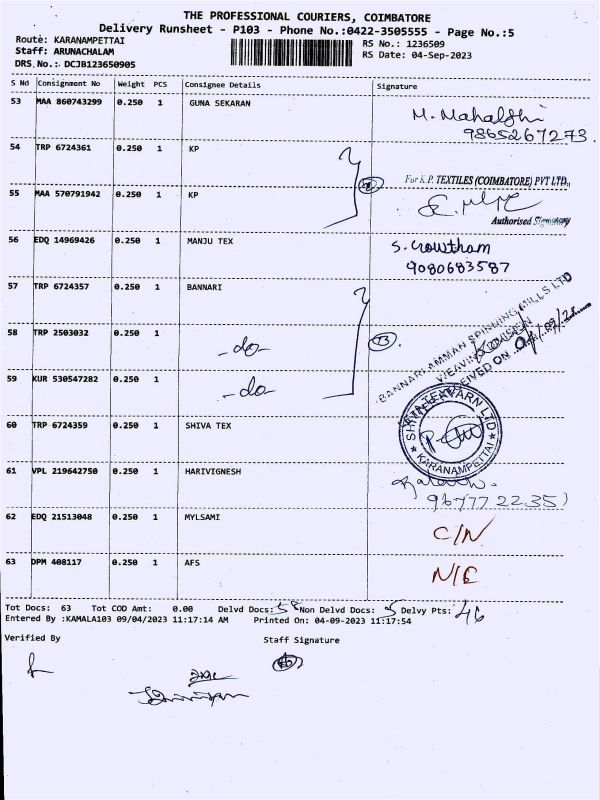 THE PROFESSIONAL COURIERS, COIMBATORE
Delivery Runsheet - P103 - Phone No.:0422-3505555 - Page No.:5
Route: KARANAMPETTAI
RS No.: 1236509
Staff: ARUNACHALAM
RS Date: 04-Sep-2023
DRS.No.: DCJB123650905
S No Consignment No Weight PCS Consignee Details Signature
53 MAA 860743299 0.250 1 GUNA SEKARAN
9865267273
54 TRP 6724361 0.250 1 KP
For K.P. TEXTILES (COIMBATORE) PVT LTD.,
55 MAA 570791942 0.250 1 KP
Authorised Signatory
56 EDQ 14969426 0.250 1 MANJU TEX
S. Gowtham
9080683587
57 TRP 6724357 0.250 1 BANNARI
58 TRP 2503032 0.250 1
-do-
BANNARI AMMAN SPINNING MILLS LTD
WEAVING DIVISION
RECEIVED ON
59 KUR 530547282 0.250 1
-do-
60 TRP 6724359 0.250 1 SHIVA TEX
SHIVA TEXYARN LTD
KARANAMPETTAI
61 VPL 219642750 0.250 1 HARIVIGNESH
62 EDQ 21513048 0.250 1 MYLSAMI
C/N
63 DPM 408117 0.250 1 AFS
N/C
Tot Docs: 63 Tot COD Amt: 0.00 Delvd Docs: 58 Non Delvd Docs: 5 Delvy Pts: 46
Entered By :KAMALA103 09/04/2023 11:17:14 AM Printed On: 04-09-2023 11:17:54
Verified By Staff Signature